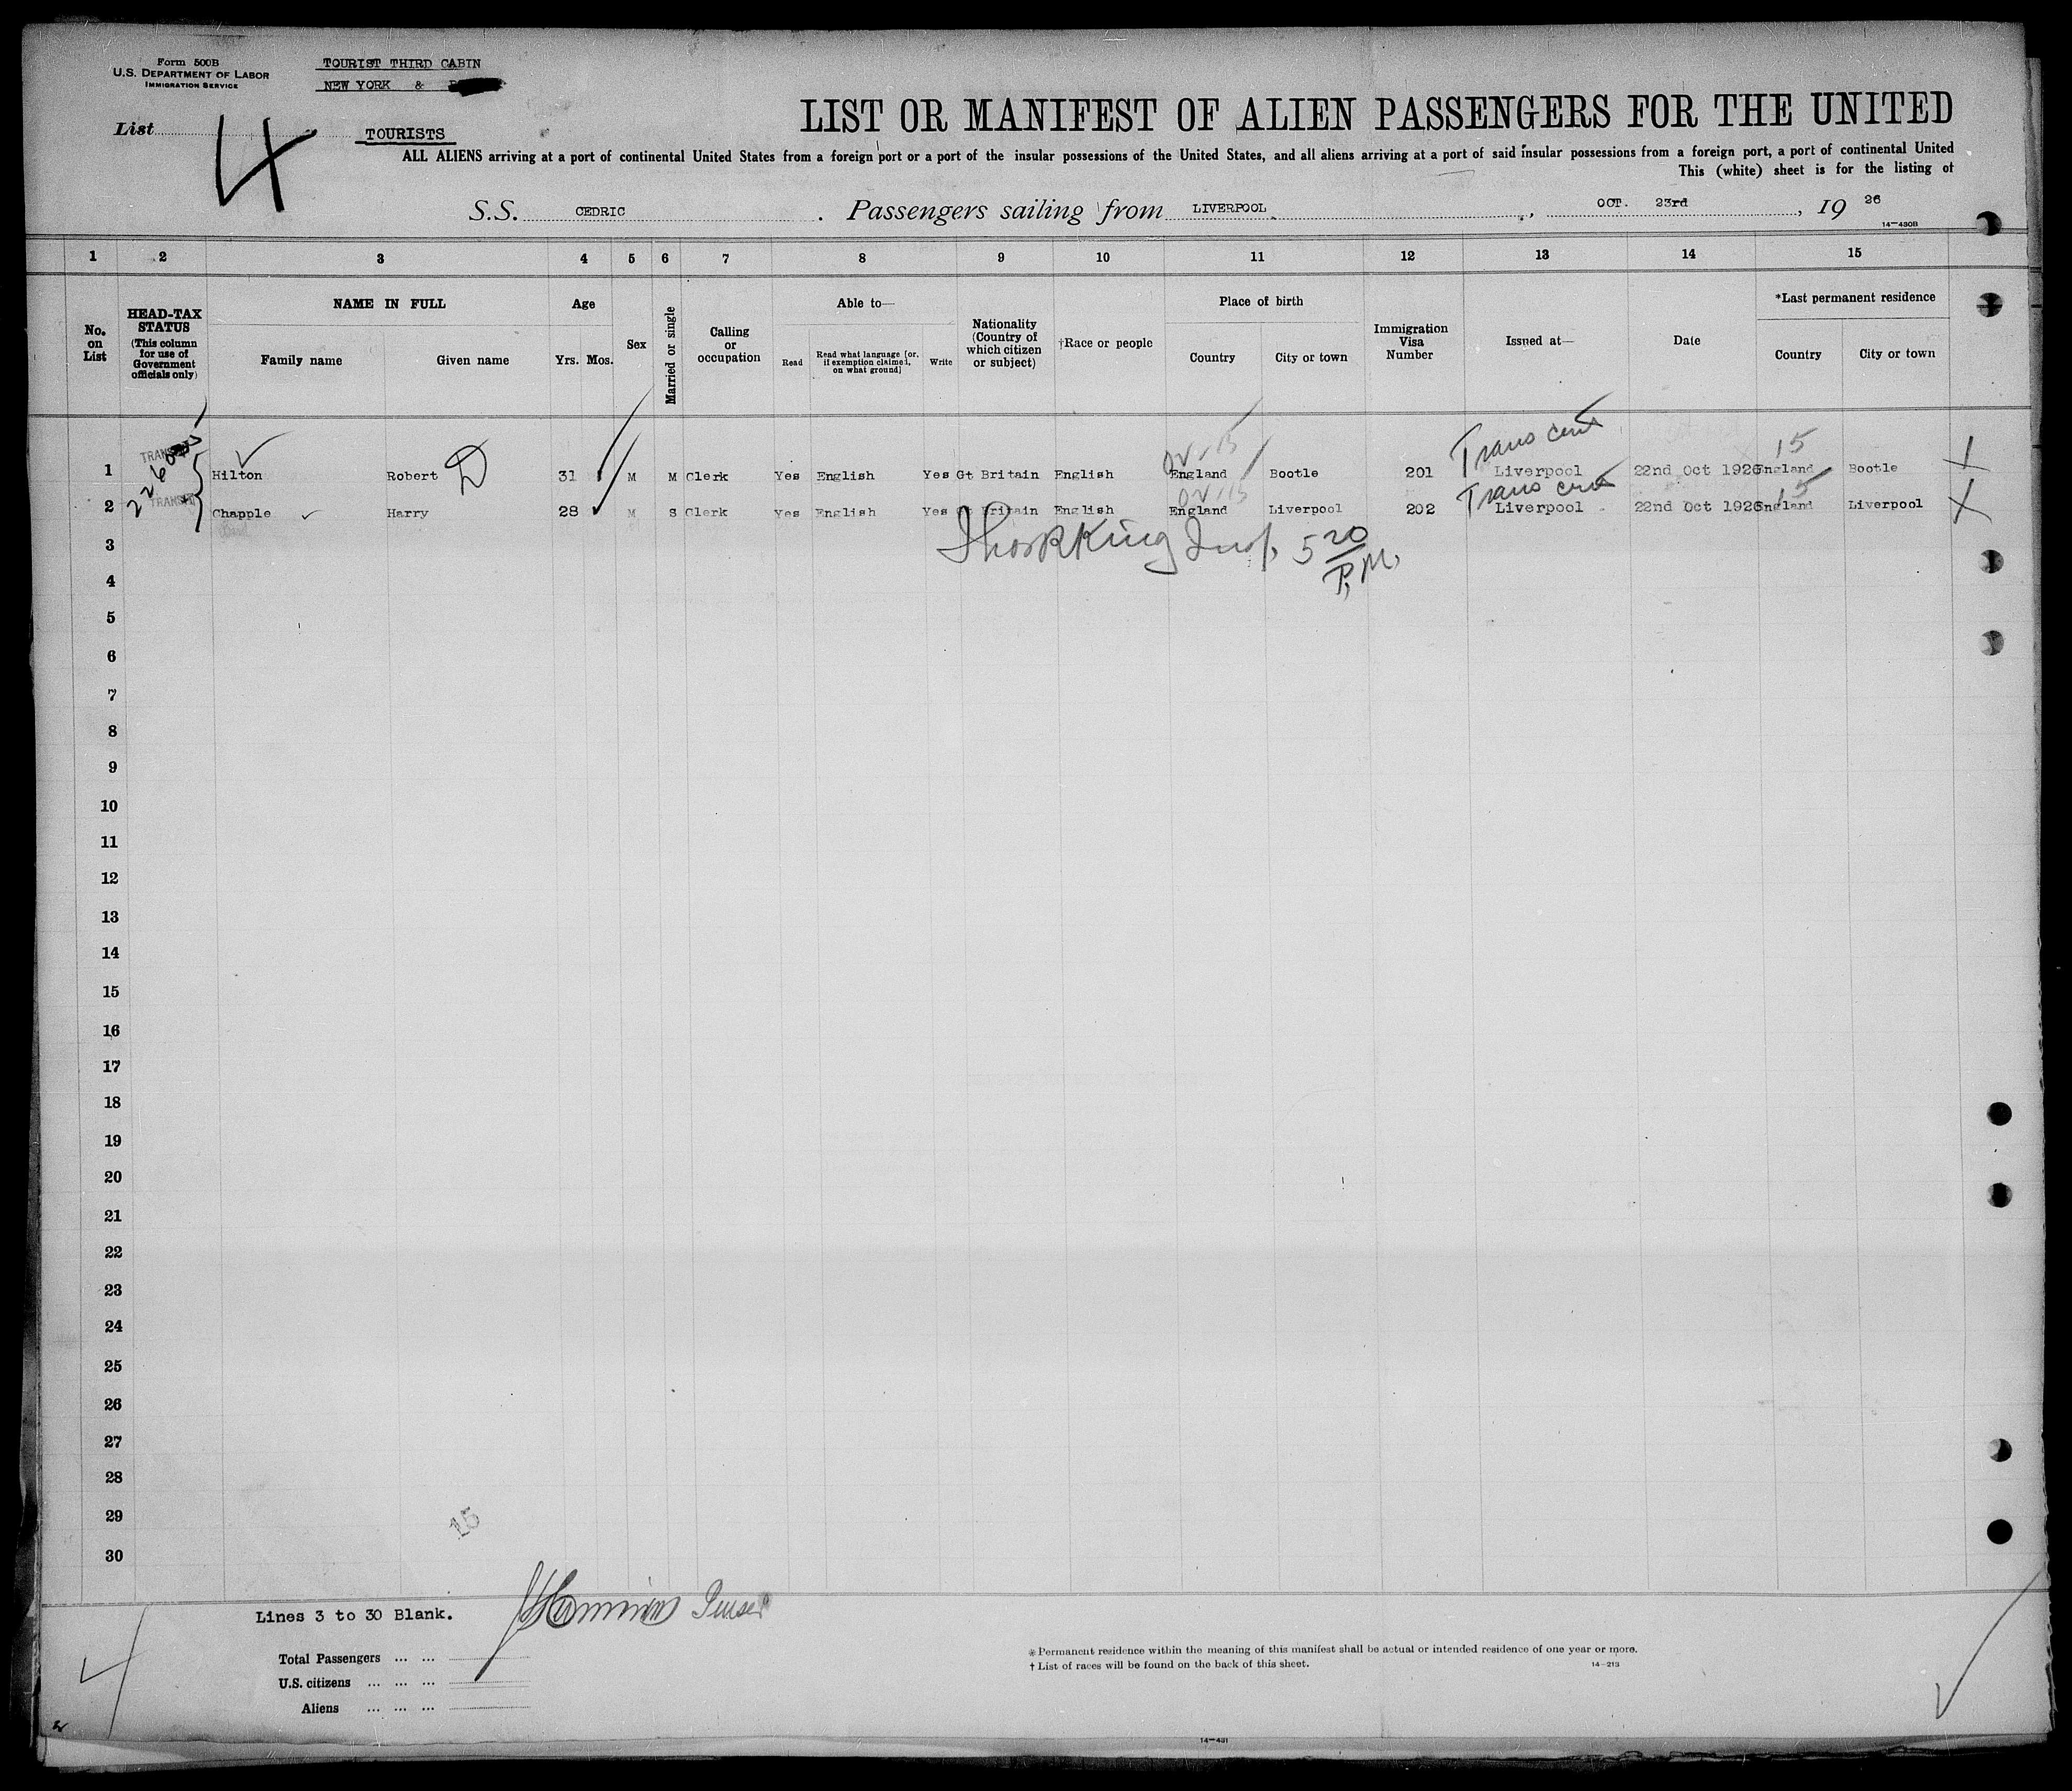 Form 500B
U.S. DEPARTMENT OF LABOR
IMMIGRATION SERVICE
TOURIST THIRD CABIN
NEW YORK &
List 4
TOURISTS
LIST OR MANIFEST OF ALIEN PASSENGERS FOR THE UNITED
ALL ALIENS arriving at a port of continental United States from a foreign port or a port of the insular possessions of the United States, and all aliens arriving at a port of said insular possessions from a foreign port, a port of continental United
This (white) sheet is for the listing of
S.S. CEDRIC. Passengers sailing from LIVERPOOL, OCT. 23rd, 19 26
14—430B
1 2 3 4 5 6 7 8 9 10 11 12 13 14 15
No. on List
HEAD-TAX STATUS (This column for use of Government officials only)
NAME IN FULL
Family name Given name
Age
Yrs. Mos.
Sex
Married or single
Calling or occupation
Able to—
Read Read what language [or, if exemption claimed, on what ground] Write
Nationality (Country of which citizen or subject)
†Race or people
Place of birth
Country City or town
Immigration Visa Number
Issued at—
Date
*Last permanent residence
Country City or town
Trans cert 15
1 Hilton Robert D 31 M M Clerk Yes English Yes Gt Britain English England Bootle 201 Liverpool 22nd Oct 1926 England Bootle
Trans cert 15
2 TRANSIT Chapple Harry 28 M S Clerk Yes English Yes Gt Britain English England Liverpool 202 Liverpool 22nd Oct 1926 England Liverpool
King Insp. 5 20 P.M.
3
4
5
6
7
8
9
10
11
12
13
14
15
16
17
18
19
20
21
22
23
24
25
26
27
28
29
15
30
Lines 3 to 30 Blank.
Purser
Total Passengers ... ...
U.S. citizens ... ... ...
Aliens ... ... ...
* Permanent residence within the meaning of this manifest shall be actual or intended residence of one year or more.
† List of races will be found on the back of this sheet.
14—213
14—431